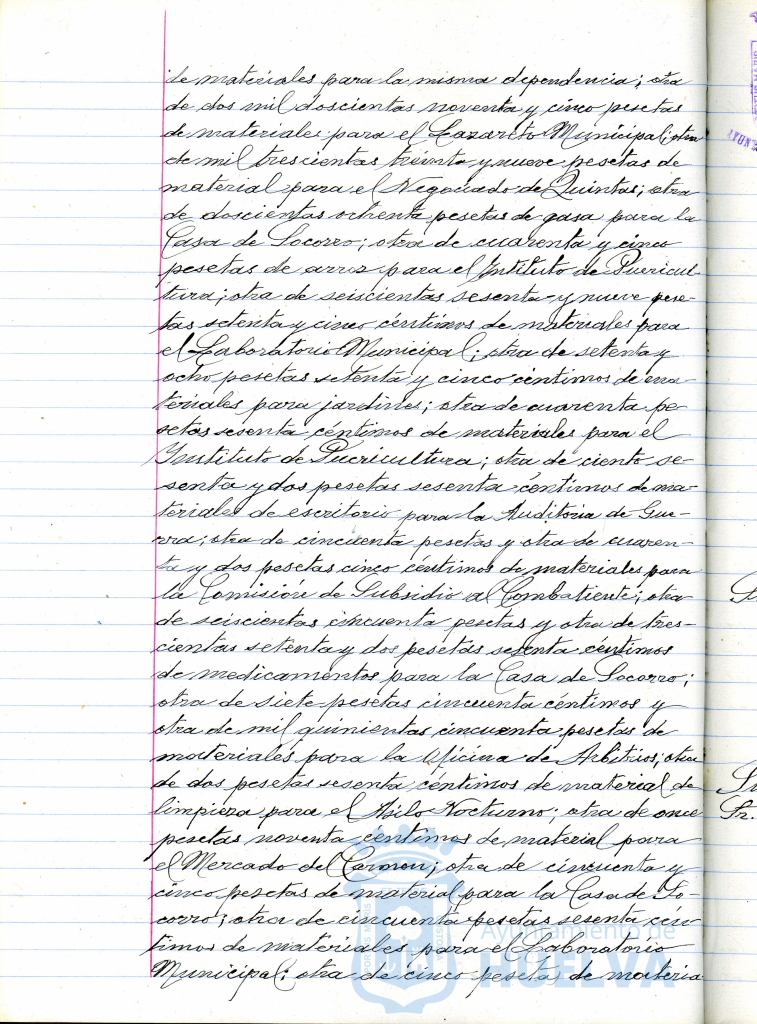 de materiales para la misma dependencia; otra
de dos mil doscientas noventa y cinco pesetas
de materiales para el Lazareto Municipal; otra
de mil trescientas treinta y nueve pesetas de
material para el Negociado de Quintas; otra
de doscientas ochenta pesetas de gasa para la
Casa de Socorro; otra de cuarenta y cinco
pesetas de arroz para el Instituto de Puericul-
tura; otra de seiscientas sesenta y nueve pese-
tas setenta y cinco céntimos de materiales para
el Laboratorio Municipal; otra de setenta y
ocho pesetas setenta y cinco céntimos de ma-
teriales para jardines; otra de cuarenta pe-
setas sesenta céntimos de materiales para el
Instituto de Puericultura; otra de ciento se-
senta y dos pesetas sesenta céntimos de ma-
teriales de escritorio para la Auditoria de Gue-
rra; otra de cincuenta pesetas y otra de cuaren-
ta y dos pesetas cinco céntimos de materiales para
la Comisión de Subsidio al Combatiente; otra
de seiscientas cincuenta pesetas y otra de tres-
cientas setenta y dos pesetas setenta céntimos
de medicamentos para la Casa de Socorro;
otra de siete pesetas cincuenta céntimos y
otra de mil quinientas cincuenta pesetas de
materiales para la Oficina de Arbitrios; otra
de dos pesetas sesenta céntimos de material de
limpieza para el Asilo Nocturno; otra de once
pesetas noventa céntimos de material para
el Mercado del Carmen; otra de cincuenta y
cinco pesetas de material para la Casa de So-
corro; otra de cincuenta pesetas sesenta cén-
timos de materiales para el Laboratorio
Municipal; otra de cinco pesetas de materia
Ayuntamiento de
HUELVA